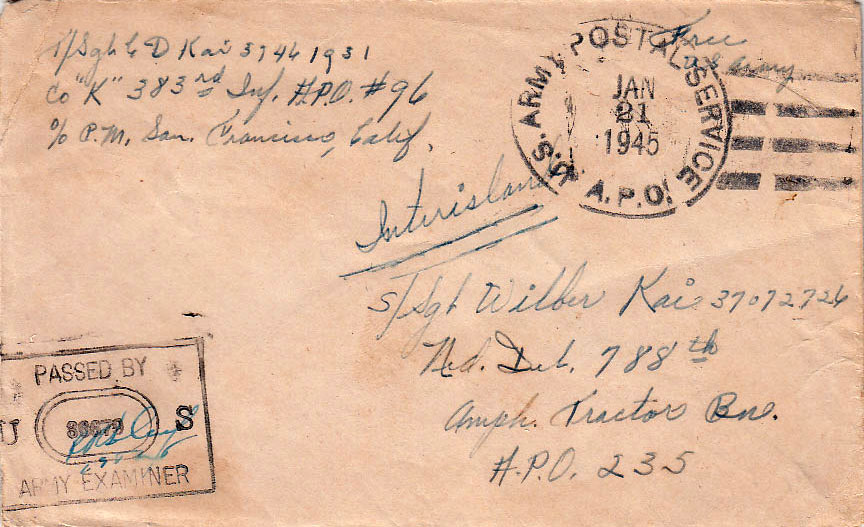 T/Sgt E D Kai 37461931
Co "K" 383rd Inf. A.P.O. #96
c/o P.M. San. Francisco, Calif.
Free
U.S. Army
U.S. ARMY POSTAL SERVICE
JAN
21
1945
A.P.O.
Interisland
S/Sgt Wilber Kai 37072726
Med. Det. 788th
Amph. Tractor Bn.
A.P.O. 235
PASSED BY
U S
ARMY EXAMINER